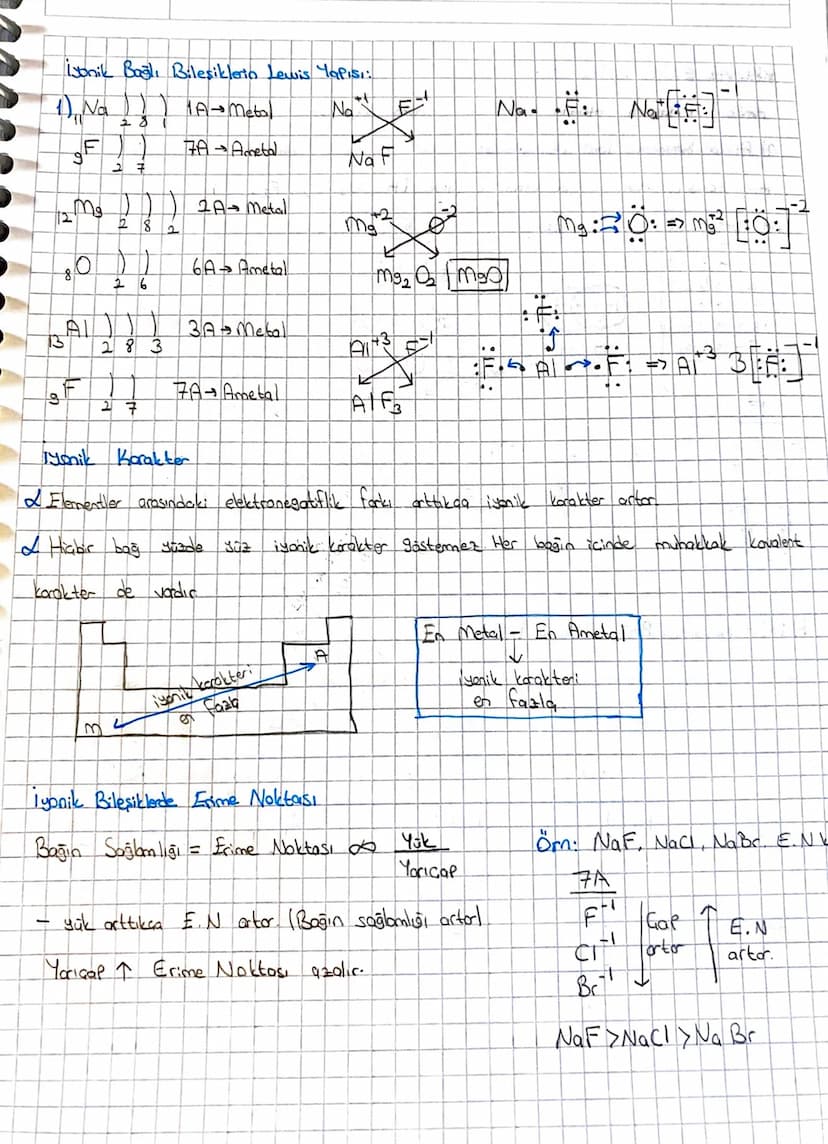 İyonik Bağlı Bileşiklerin Lewis Yapısı:
1) ₁₁Na ) ) ) 1A→Metal Na⁺¹ F⁻¹ Na· ·F: Na⁺[:F:]⁻¹
2 8 1
₉F ) ) 7A→Ametal NaF
2 7
₁₂Mg ) ) ) 2A→Metal Mg⁺² O⁻² Mg: O: => Mg⁺² [:O:]⁻²
2 8 2
₈O ) ) 6A→Ametal Mg₂O₂ MgO
2 6
:F:
₁₃Al ) ) ) 3A→Metal Al⁺³ F⁻¹ :F· Al ·F: => Al⁺³ 3[:F:]⁻¹
2 8 3
₉F ) ) 7A→Ametal AlF₃
2 7
İyonik Karakter
Elementler arasındaki elektronegatiflik farkı arttıkça iyonik karakter artar.
Hiçbir bağ yüzde yüz iyonik karakter göstermez Her bağın içinde muhakkak kovalent
karakter de vardır
En Metal - En Ametal
↓
İyonik karakteri
en fazla
A
iyonik karakteri
en fazla
m
İyonik Bileşiklerde Erime Noktası
Bağın Sağlamlığı = Erime Noktası ∞ Yük
Yarıçap
- yük arttıkça E.N artar. (Bağın sağlamlığı artar)
Yarıçap ↑ Erime Noktası azalır.
Örn: NaF, NaCl, NaBr. E.N
7A
F⁻¹
Cl⁻¹
Br⁻¹
Çap
artar
E.N
artar.
NaF>NaCl>NaBr